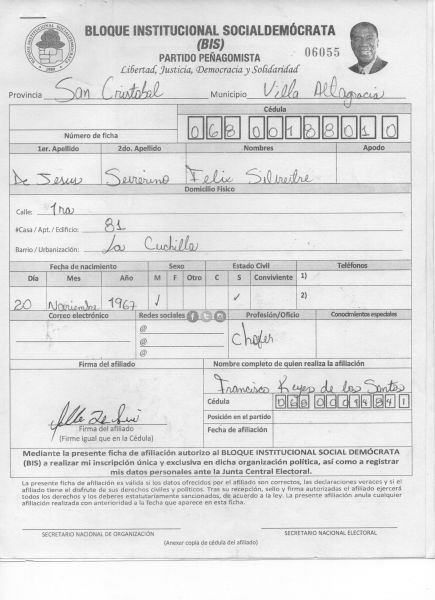 BLOQUE INSTITUCIONAL SOCIALDEMÓCRATA
(BIS)
PARTIDO PEÑAGOMISTA
06055
Libertad, Justicia, Democracia y Solidaridad
Provincia San Cristobal Municipio Villa Altagracia
Cédula
Número de ficha 068 0018801 0
1er. Apellido 2do. Apellido Nombres Apodo
De Jesus Severino Felix Silvestre
Domicilio Físico
Calle: 1ra
#Casa / Apt. / Edificio: 81
Barrio / Urbanización: La Cuchilla
Fecha de nacimiento Sexo Estado Civil Teléfonos
Día Mes Año M F Otro C S Conviviente 1)
20 Noviembre 1967 ✓ ✓ 2)
Correo electrónico Redes sociales Profesión/Oficio Conocimientos especiales
@ Chofer
@
@
Firma del afiliado Nombre completo de quien realiza la afiliación
Francisco Reyes de los Santos
Cédula
Posición en el partido
Firma del afiliado
Fecha de afiliación
(Firme igual que en la Cédula)
Mediante la presente ficha de afiliación autorizo al BLOQUE INSTITUCIONAL SOCIAL DEMÓCRATA
(BIS) a realizar mi inscripción única y exclusiva en dicha organización política, así como a registrar
mis datos personales ante la Junta Central Electoral.
La presente ficha de afiliación es válida si los datos ofrecidos por el afiliado son correctos, las declaraciones veraces y si el
afiliado tiene el disfrute de sus derechos civiles y políticos. Tras su recepción, sello y firma autorizadas el afiliado ejercerá
todos los derechos y los deberes estatutariamente sancionados, de acuerdo a la ley. La presente afiliación anula cualquier
afiliación realizada con anterioridad a la fecha que aparece en esta ficha.
SECRETARIO NACIONAL DE ORGANIZACIÓN SECRETARIO NACIONAL ELECTORAL
(Anexar copia de cédula del afiliado)